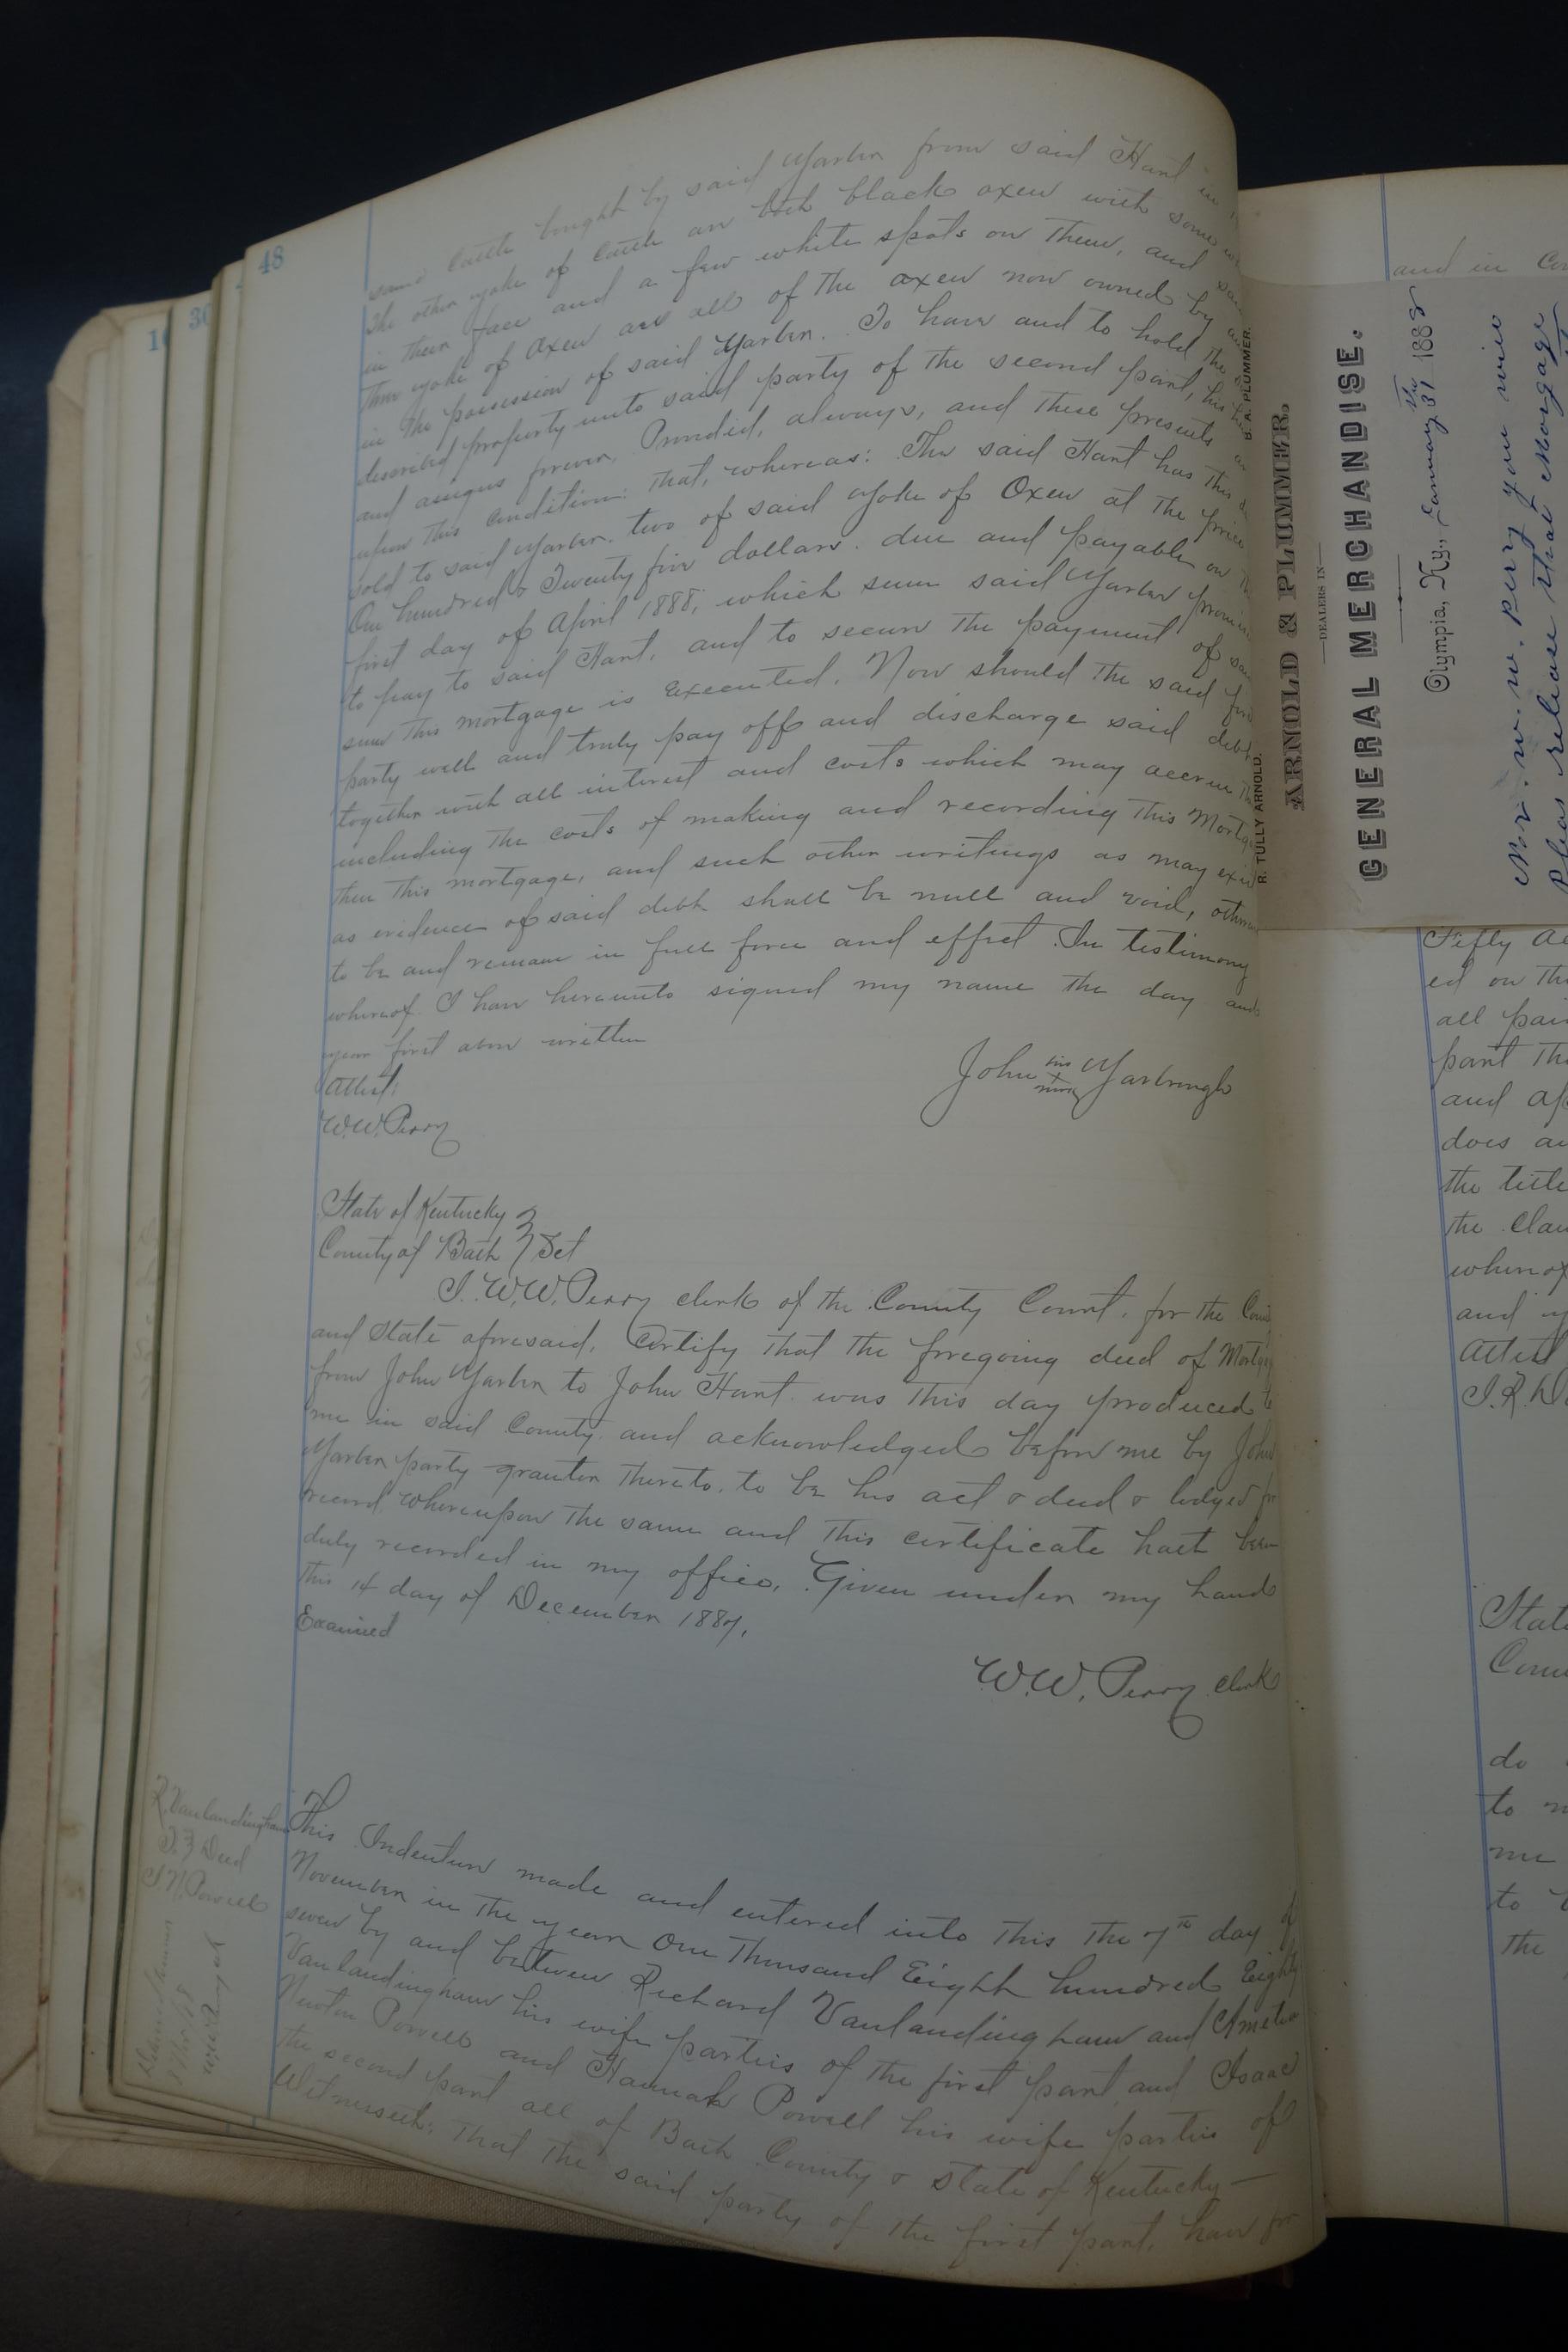 48
same Cattle bought by said Yarber from said Hart in
The other yoke of Cattle are both black oxen with some
in their face and a few white spots on them, and said
Three yoke of Oxen are all of the oxen now owned by
in the possession of said Yarber. To have and to hold the
described property unto said party of the second part, his
and assigns forever, Provided, always, and these presents
upon this Condition: That, whereas: The said Hart has this
sold to said Yarber. two of said yoke of Oxen at the price
One hundred & Twenty five dollars. due and payable on
first day of April 1888, which sum said Yarber
to pay to said Hart, and to secure the payment of
sum this mortgage is Executed, Now should the said first
party well and truly pay off and discharge said debt
together with all interest and costs which may accrue
including the costs of making and recording this
then this mortgage, and such other writings as may exist
as evidence of said debt shall be null and void,
to be and remain in full force and effect. In testimony
whereof I have hereunto signed my name the day and
year first above written
Attest;
John his x mark Yarbrough
W.W. Perry
State of Kentucky }
County of Bath } Sct
I. W.W. Perry clerk of the County Court. for the
and State aforesaid, Certify that the foregoing deed of
from John Yarber to John Hart was this day produced to
me in said County and acknowledged before me by John
Yarber party grantor thereto. to be his act & deed & lodged for
record whereupon the same and this certificate hath been
duly recorded in my office, Given under my hand
This 14 day of December 1887.
Examined
W.W. Perry clerk
R. Vanlandingham
To } Deed
I N Powell
This Indenture made and entered into this the 7th day of
November in the year One Thousand Eight hundred Eighty
seven by and between Richard Vanlandingham and
Vanlandingham his wife parties of the first part and Isaac
Newton Powell and Hannah Powell his wife parties of
the second part all of Bath County & State of Kentucky—
Witnesseth; That the said party of the first part, have for
B. A. PLUMMER.
R. TULLY ARNOLD.
ARNOLD & PLUMMER.
—DEALERS IN—
GENERAL MERCHANDISE.
Olympia, Ky., January the 31 1888
Mr. w. w. perry you will
Pleas release that Morgage
and in
Fifty
ed on
all
part
and
does
the title
the
whereof
and
Attest
I. R.
State
do
to
me
to
the